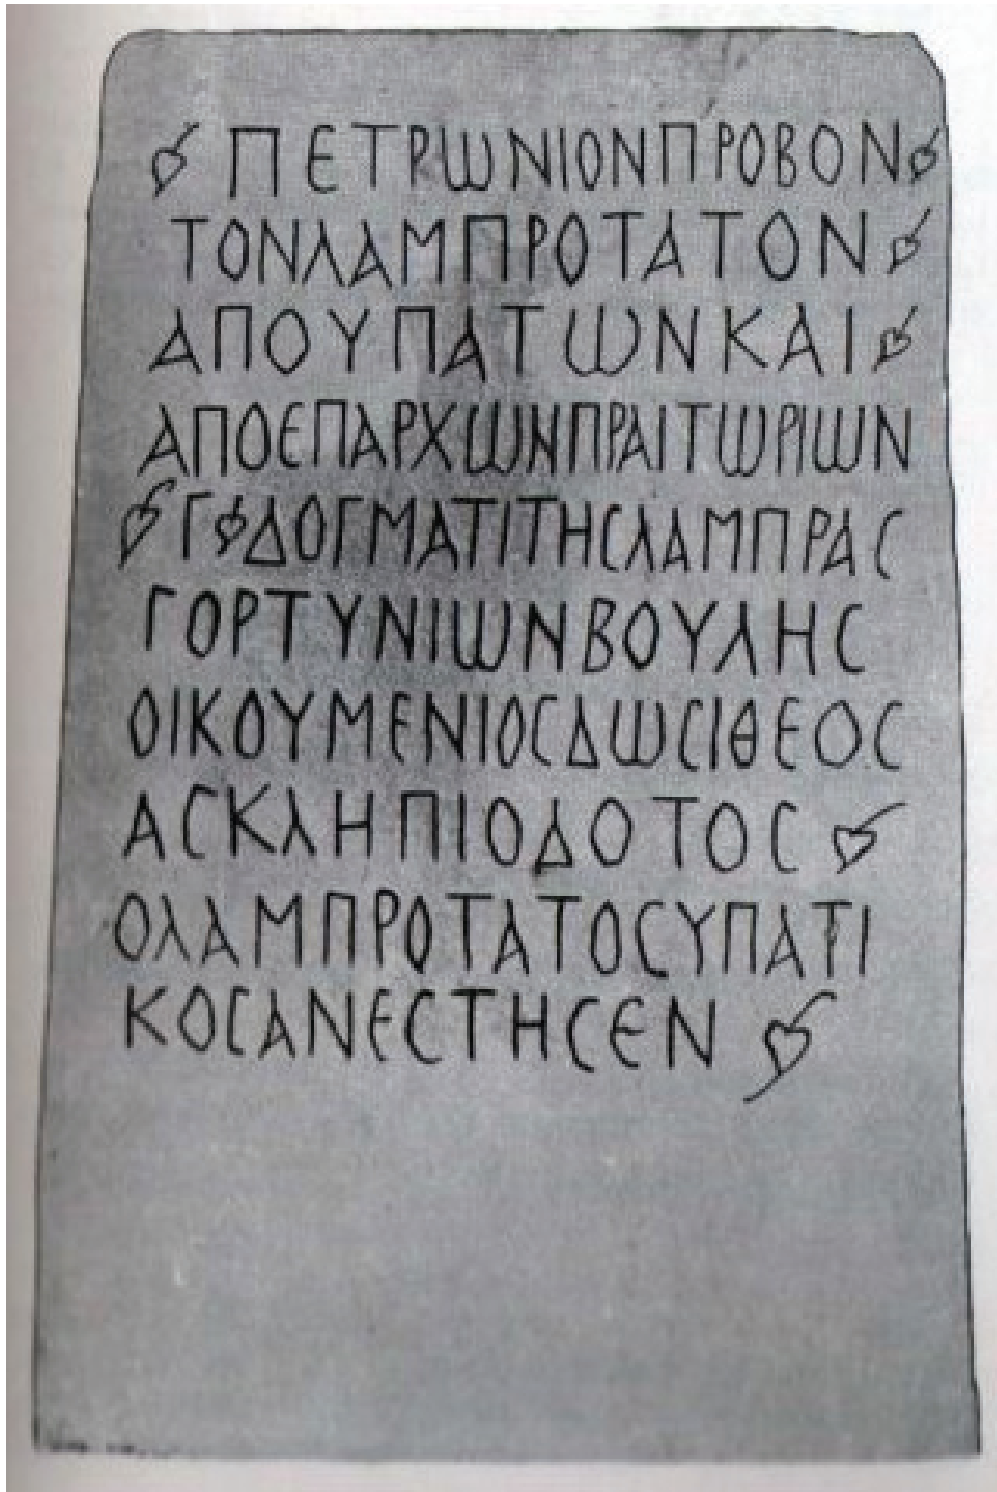 ❧ ΠΕΤΡΩΝΙΟΝΠΡΟΒΟΝ ❧
ΤΟΝΛΑΜΠΡΟΤΑΤΟΝ ❧
ΑΠΟΥΠΑΤΩΝΚΑΙ ❧
ΑΠΟΕΠΑΡΧΩΝΠΡΑΙΤΩΡΙΩΝ
❧ Γ ❧ ΔΟΓΜΑΤΙΤΗϹΛΑΜΠΡΑϹ
ΓΟΡΤΥΝΙΩΝΒΟΥΛΗϹ
ΟΙΚΟΥΜΕΝΙΟϹΔΩϹΙΘΕΟϹ
ΑϹΚΛΗΠΙΟΔΟΤΟϹ ❧
ΟΛΑΜΠΡΟΤΑΤΟϹΥΠΑΤΙ
ΚΟϹΑΝΕϹΤΗϹΕΝ ❧